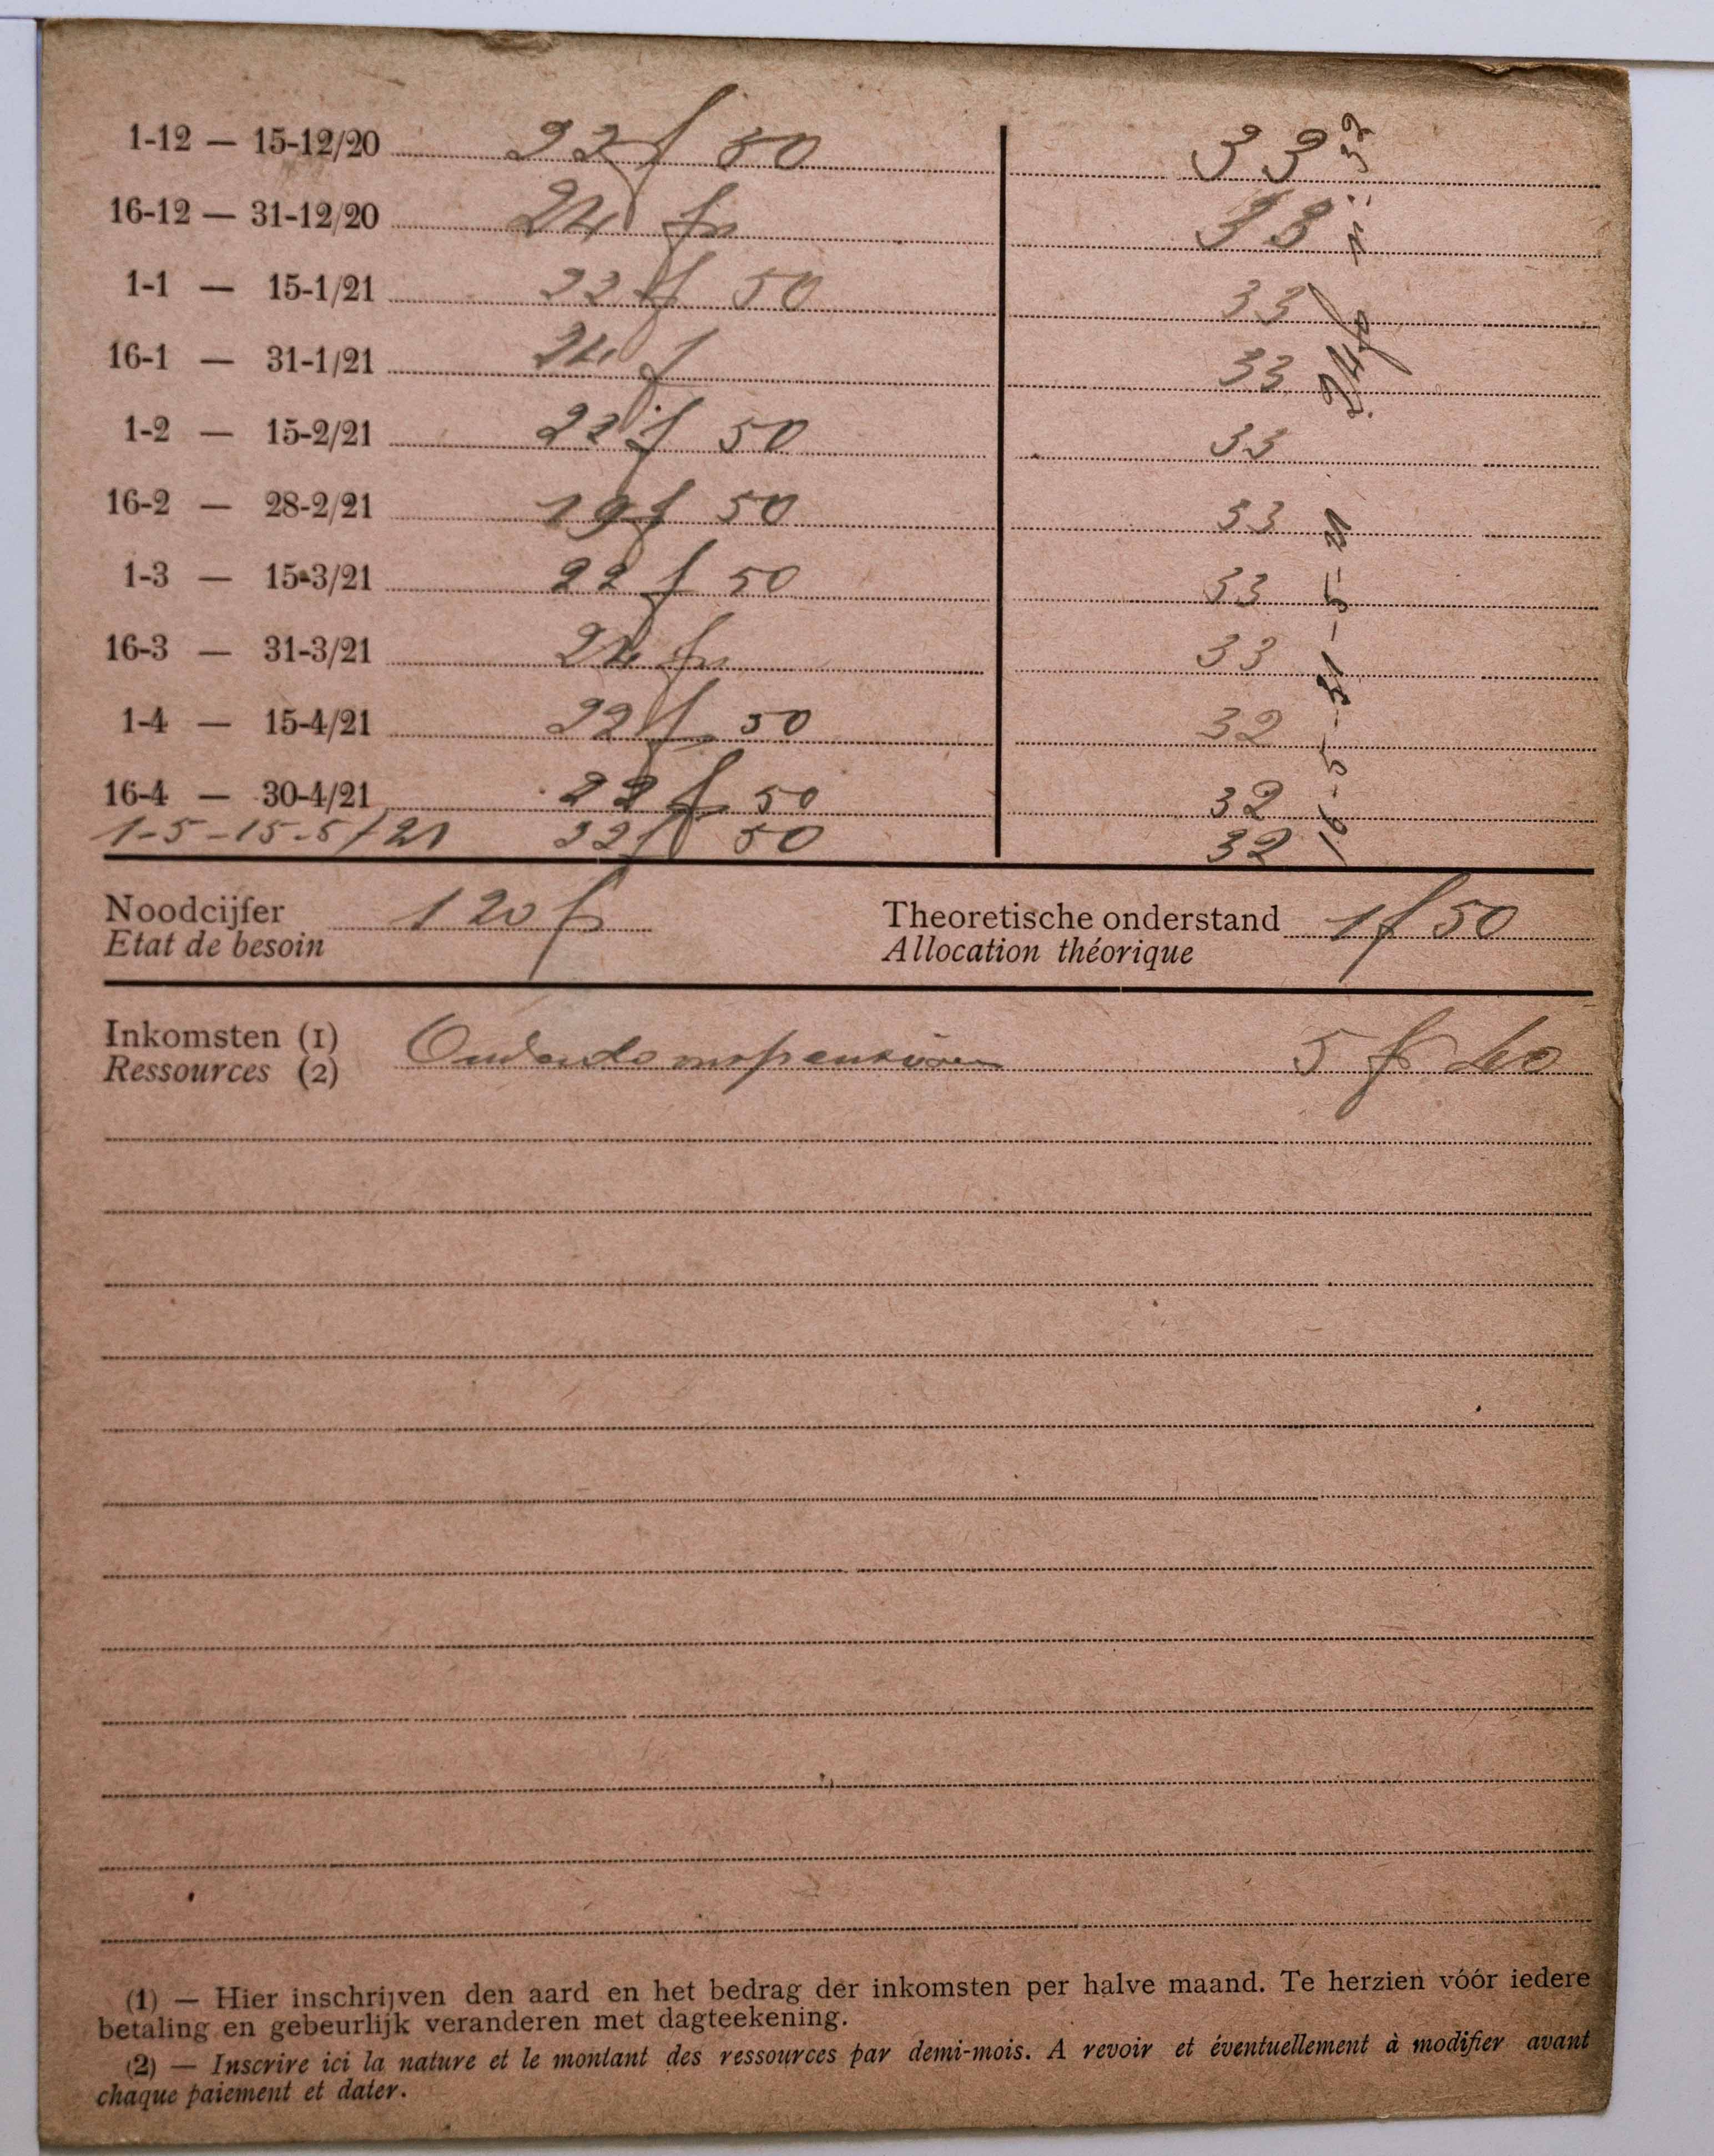 1-12 — 15-12/20 22 f 50 33
16-12 — 31-12/20 24 fr 33
1-1 — 15-1/21 22 f 50 33
16-1 — 31-1/21 24 f 33
1-2 — 15-2/21 22 f 50 33
16-2 — 28-2/21 19 f 50 33
1-3 — 15-3/21 22 f 50 33
16-3 — 31-3/21 24 fr 33
1-4 — 15-4/21 22 f 50 32
16-4 — 30-4/21 22 f 50 32
1-5-15-5/21 22 f 50 32
16-5-31-5-21 24 fr n: 32
Noodcijfer 120 fr Theoretische onderstand 1 f 50
Etat de besoin Allocation théorique
Inkomsten (1) Ouderdomspensioen 5 fr 40
Ressources (2)
(1) — Hier inschrijven den aard en het bedrag der inkomsten per halve maand. Te herzien vóór iedere
betaling en gebeurlijk veranderen met dagteekening.
(2) — Inscrire ici la nature et le montant des ressources par demi-mois. A revoir et éventuellement à modifier avant
chaque paiement et dater.